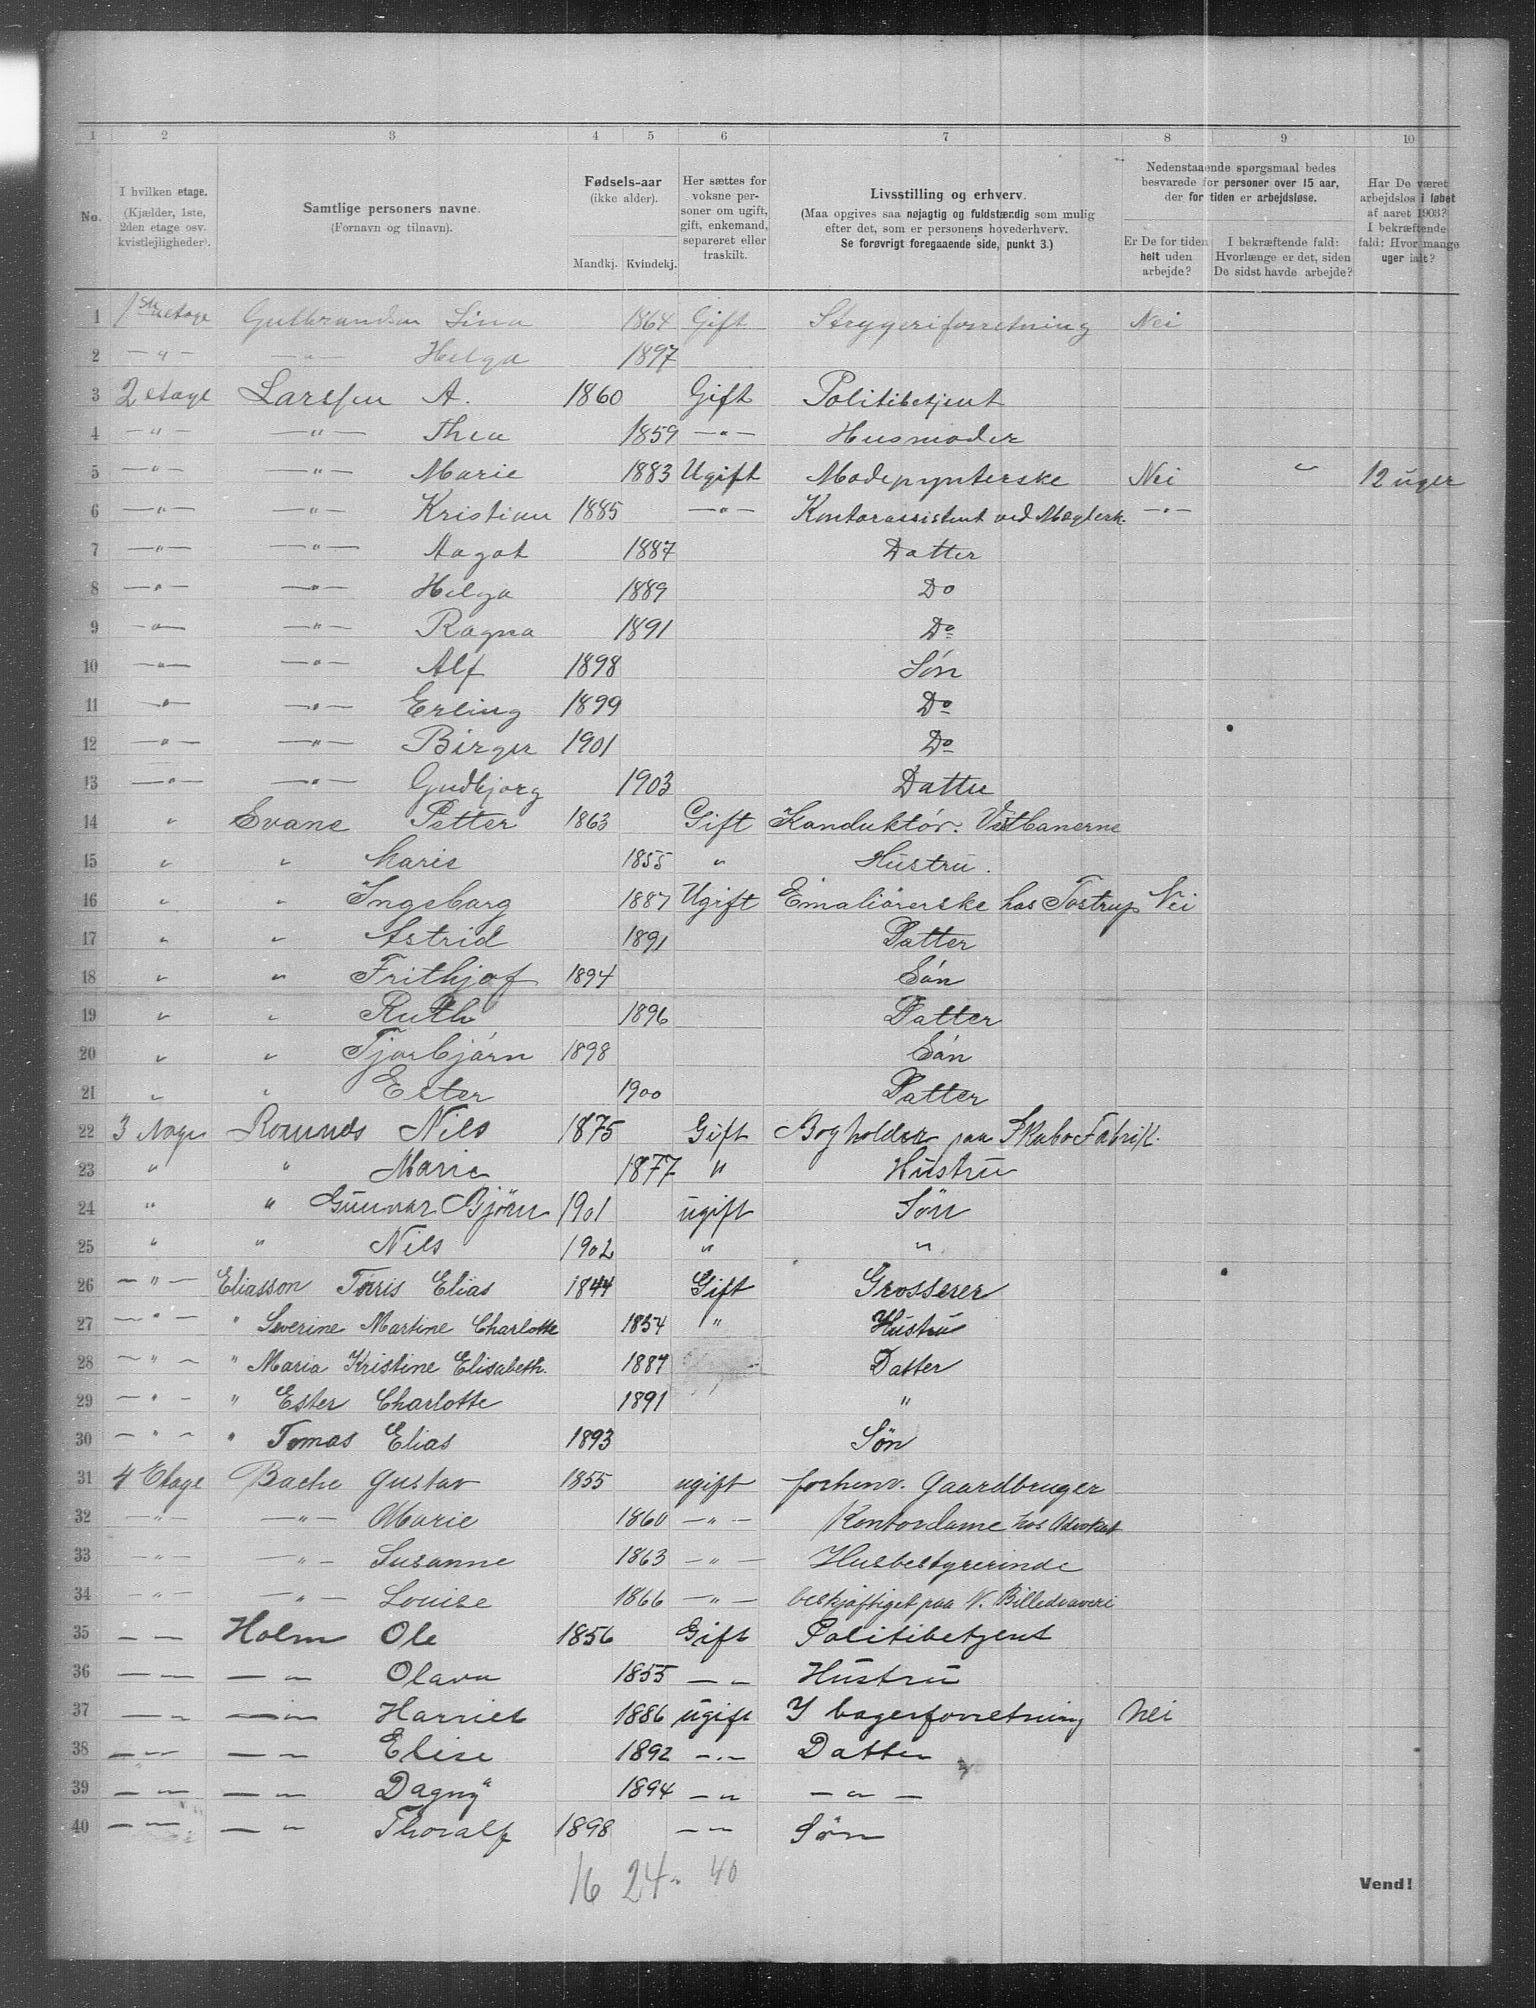 1 2 3 4 5 6 7 8 9 10
No.
I hvilken etage. (Kjælder, 1ste, 2den etage osv. kvistlejligheder).
Samtlige personers navne. (Fornavn og tilnavn).
Fødsels-aar (ikke alder). Mandkj. Kvindekj.
Her sættes for voksne personer om ugift, gift, enkemand, separeret eller fraskilt.
Livsstilling og erhverv. (Maa opgives saa nøjagtig og fuldstændig som mulig efter det, som er personens hovederhverv. Se forøvrigt foregaaende side, punkt 3.)
Nedenstaaende spørgsmaal bedes besvarede for personer over 15 aar, der for tiden er arbejdsløse.
Er De for tiden helt uden arbejde?
I bekræftende fald: Hvorlænge er det, siden De sidst havde arbejde?
Har De været arbejdsløs i løbet af aaret 1903? I bekræftende fald: Hvor mange uger ialt?
1 1ste etage Gulbrandsen Lina 1864 Gift Strygeriforretning Nei
2 — " — — " — Helga 1897
3 2 etage Larssen A. 1860 Gift Politibetjent
4 — " — — " — Thea 1859 — " — Husmoder
5 — " — — " — Marie 1883 Ugift Modepynterske Nei " 12 uger
6 — " — — " — Kristian 1885 — " — Kontorassistent ved Mæglerk. — " —
7 — " — — " — Aagot 1887 Datter
8 — " — — " — Helga 1889 Do
9 — " — — " — Ragna 1891 Do
10 — " — — " — Alf 1898 Søn
11 — " — — " — Erling 1899 Do
12 — " — — " — Birger 1901 Do
13 — " — — " — Gudbjorg 1903 Datter
14 " Evane Petter 1863 Gift Konduktör. Vestbanerne
15 " " Maris 1855 " Hustru.
16 " " Ingeborg 1887 Ugift Emaliörerske hos Tostrup Nei
17 " " Astrid 1891 Datter
18 " " Frithjof 1894 Sön
19 " " Ruth 1896 Datter
20 " " Tjorbjörn 1898 Sön
21 " " Ester 1900 Datter
22 3 Romnes Nils 1875 Gift Bogholder paa Skabo Fabrik.
23 " " Marie 1877 " Hustru
24 " " Gunnar Bjørn 1901 ugift Søn
25 " " Nils 1902 " "
26 — " — Eliasson Tøris Elias 1844 Gift Grosserer
27 — " — " Severine Martine Charlotte 1854 " Hustru
28 — " — " Maria Kristine Elisabeth. 1887 Datter
29 — " — " Ester Charlotte 1891 "
30 — " — " Tomas Elias 1893 Søn
31 4 Etage Bache Gustav 1855 ugift forhenv. Gaardbruger
32 — " — — " — Marie 1860 — " — Kontordame hos Advokat
33 — " — — " — Susanne 1863 — " — Husbestyrerinde
34 — " — — " — Louise 1866 — " — beskjæftiget paa N. Billedvæveri
35 — — Holm Ole 1856 Gift Politibetjent
36 — — — " Olava 1855 — " Hustru
37 — " — " — Harriet 1886 ugift I bagerforretning Nei
38 — " — — " Elise 1892 — " — Datter
39 — " — — " Dagny 1894 — " — " —
40 — " — — " Thoralf 1898 — " — Søn
16 24 40
Vend!